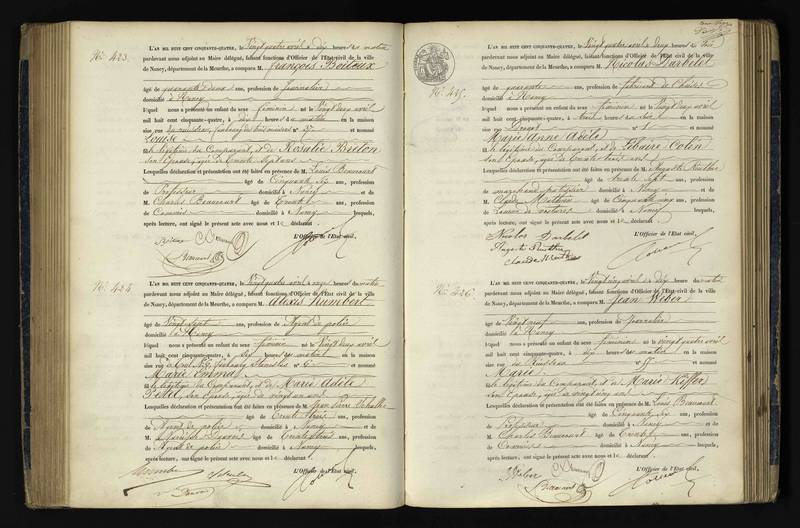 No. 423.
L'AN MIL HUIT CENT CINQUANTE-QUATRE, le Vingt quatre avril à dix heures du matin
pardevant nous adjoint au Maire délégué, faisant fonctions d'Officier de l'Etat civil de la ville
de Nancy, département de la Meurthe, a comparu M. François Boileux
âgé de quarante deux ans, profession de journalier
domicilié à Nancy
lequel nous a présenté un enfant du sexe féminin né le Vingt deux avril
mil huit cent cinquante-quatre, à dix heures du matin en la maison
sise rue faubourg des trois maisons n° et nommé
Louise
et légitime du Comparant, et de Rosalie Breton
son Epouse, âgée de trente sept ans
Lesquelles déclaration et présentation ont été faites en présence de M. Louis Beaucourt
âgé de Cinquante six ans, profession
de Professeur domicilié à Nancy et de
M. Charles Beaucourt âgé de Trente ans, profession
de Commis domicilié à Nancy lesquels,
après lecture, ont signé le présent acte avec nous et le déclarant
L'Officier de l'Etat civil,
No. 424.
L'AN MIL HUIT CENT CINQUANTE-QUATRE, le Vingt quatre avril à onze heures du matin
pardevant nous adjoint au Maire délégué, faisant fonctions d'Officier de l'Etat civil de la ville
de Nancy, département de la Meurthe, a comparu M. Alexis Humbert
âgé de Vingt Sept ans, profession de Agent de police
domicilié à Nancy
lequel nous a présenté un enfant du sexe féminin né le Vingt deux avril
mil huit cent cinquante-quatre, à six heures du matin en la maison
sise rue faubourg Stanislas n° 6 et nommé
Marie Emma
et légitime du Comparant, et de Marie Adèle
son Epouse, âgée de vingt un ans
Lesquelles déclaration et présentation ont été faites en présence de M. Jean Pierre
âgé de Trente trois ans, profession
de Agent de police domicilié à Nancy et de
M. âgé de Trente trois ans, profession
de Agent de police domicilié à Nancy lesquels,
après lecture, ont signé le présent acte avec nous et le déclarant
L'Officier de l'Etat civil,
No. 425.
L'AN MIL HUIT CENT CINQUANTE-QUATRE, le Vingt quatre avril à deux heures du soir
pardevant nous adjoint au Maire délégué, faisant fonctions d'Officier de l'Etat civil de la ville
de Nancy, département de la Meurthe, a comparu M. Nicolas Darbelet
âgé de quarante ans, profession de fabricant de Chaises
domicilié à Nancy
lequel nous a présenté un enfant du sexe féminin né le Vingt trois avril
mil huit cent cinquante-quatre, à trois heures du soir en la maison
sise rue n° 1 et nommé
Marie Anne Adèle
et légitime du Comparant, et de Libaire Colin
son Epouse, âgée de trente trois ans
Lesquelles déclaration et présentation ont été faites en présence de M. Auguste
âgé de trente sept ans, profession
de marchand domicilié à Nancy et de
M. Claude Mathieu âgé de Cinquante cinq ans, profession
de loueur de voitures domicilié à Nancy lesquels,
après lecture, ont signé le présent acte avec nous et le déclarant
L'Officier de l'Etat civil,
Nicolas Darbelet
No. 426.
L'AN MIL HUIT CENT CINQUANTE-QUATRE, le Vingt cinq avril à dix heures du matin
pardevant nous adjoint au Maire délégué, faisant fonctions d'Officier de l'Etat civil de la ville
de Nancy, département de la Meurthe, a comparu M. Jean Weber
âgé de Vingt neuf ans, profession de journalier
domicilié à Nancy
lequel nous a présenté un enfant du sexe féminin né le Vingt quatre avril
mil huit cent cinquante-quatre, à dix heures du matin en la maison
sise rue n° et nommé
Marie
et légitime du Comparant, et de Marie Kiffer
son Epouse, âgée de vingt cinq ans
Lesquelles déclaration et présentation ont été faites en présence de M. Louis Beaucourt
âgé de Cinquante six ans, profession
de Professeur domicilié à Nancy et de
M. Charles Beaucourt âgé de Trente ans, profession
de Commis domicilié à Nancy lesquels,
après lecture, ont signé le présent acte avec nous et le déclarant
L'Officier de l'Etat civil,
J Weber